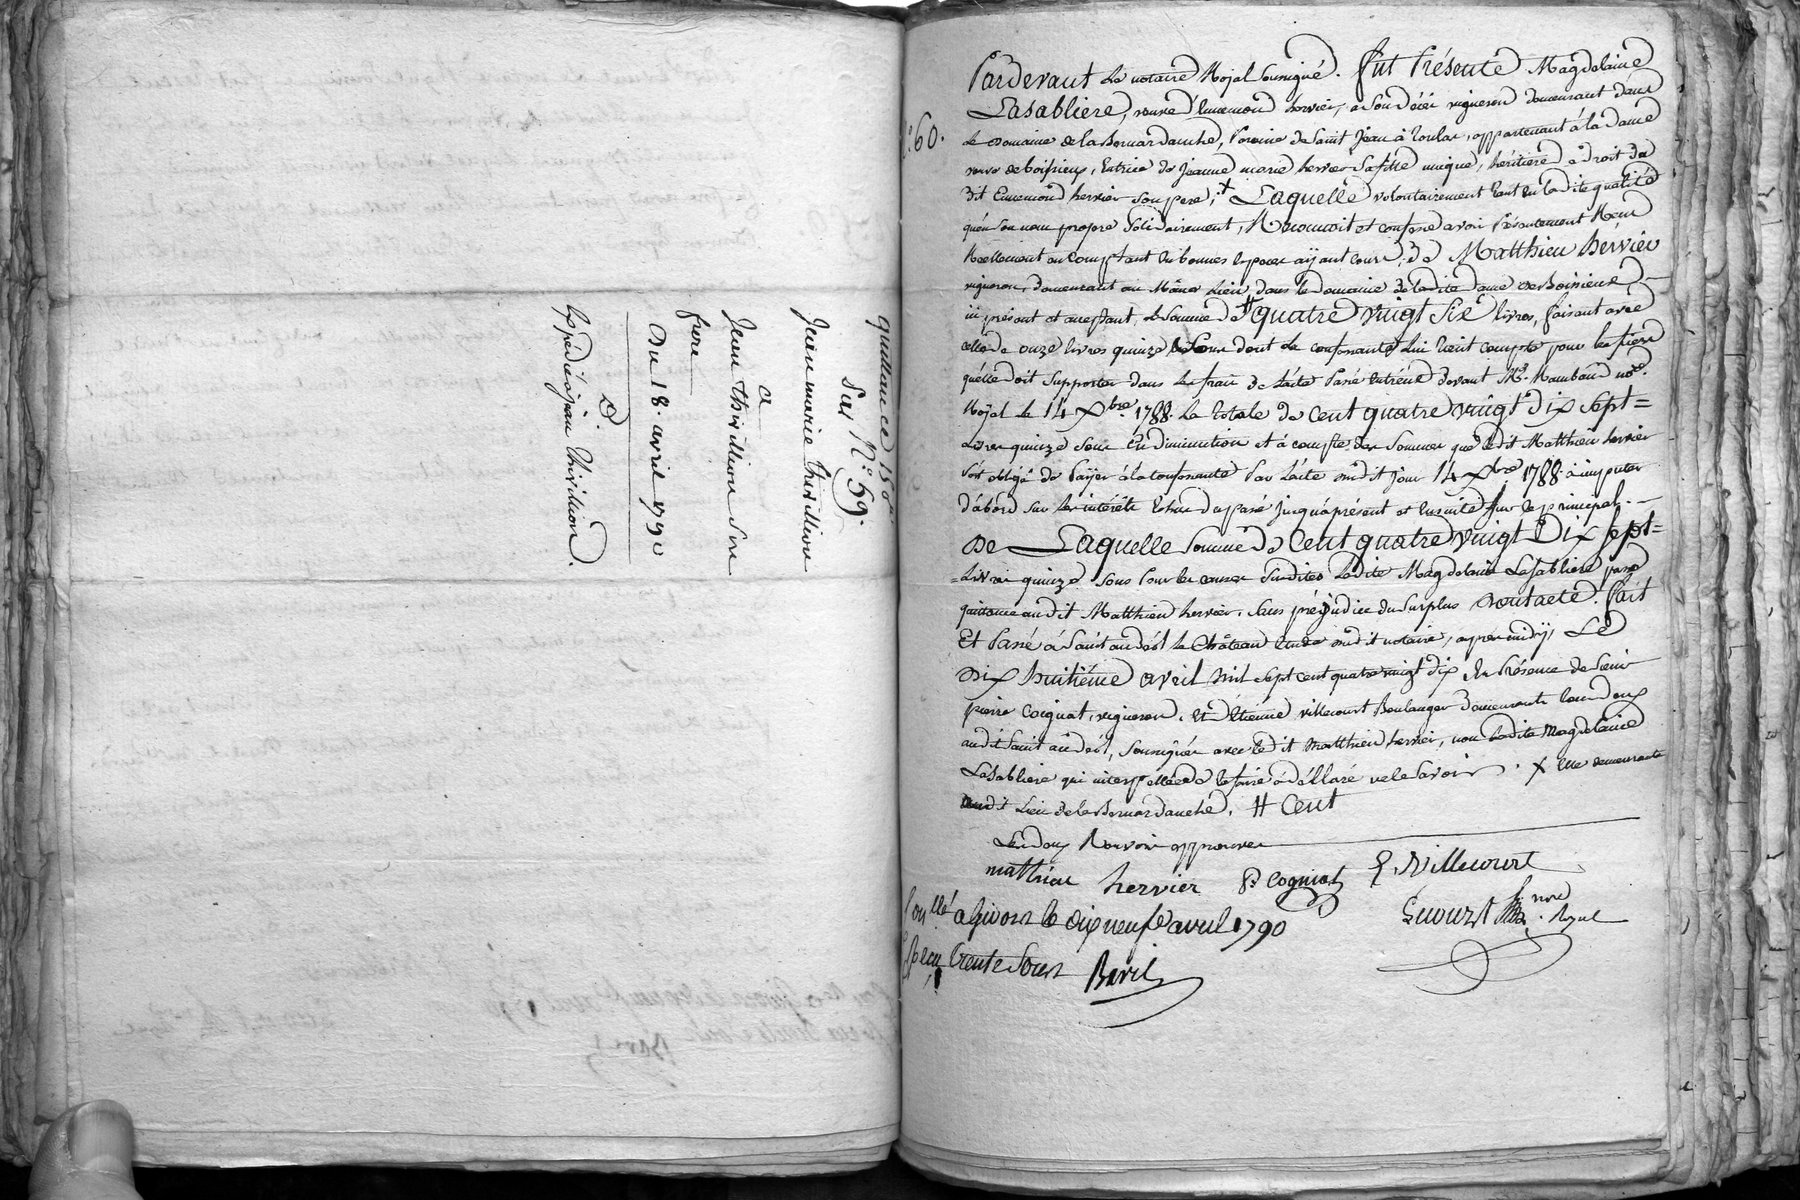 quittance 150#
Sur N.° 59.
Jean marie thivillion
a
Jean thivillion Son
frere
Du 18. avril 1790
Expédié à jean thivillion.
N.° 60.
Pardevant Le notaire Royal soussigné. fut Présente Magdelaine
Lasabliere, veuve d'Ennemond hervier, a son décès vigneron demeurant dans
Le Domaine de la Bernardanche, Paroisse de Saint Jean à Toulas, appartenant à la dame
veuve de boissieux, tutrice de Jeanne marie hervier Sa fille unique, héritière de droit du
dit Ennemond hervier Son pere; + Laquelle volontairement tant en ladite qualité
qu'en Son nom propre Solidairement, Reconnoit et confesse avoir Présentement Reçu
Réellement au Comptant en bonnes especes aÿant cours, de Matthieu hervier
vigneron, demeurant au Même Lieu, dans le domaine de ladite dame de Boissieux
ici présent et acceptant, la Somme de # quatre vingt Six livres, faisant avec
celle de onze livres quinze Sous dont la confessante Lui tient compte pour les siens
qu'elle doit Supporter dans les frais de L'acte Passé entr'eux devant Me. Mambaud nore.
Royal le 14 Xbre. 1788. la totale de Cent quatre vingt dix sept=
Livres quinze Sous En diminution et à compte des Sommes que ledit Matthieu hervier
s'est obligé de Païer à la confessante Par L'acte susdit jour 14 Xbre 1788. à imputer
d'abord Sur les intérêts échus du passé jusqu'à présent et ensuite sur le principal.
De Laquelle Somme de Cent quatre vingt Dix Sept=
=Livres quinze Sous Pour les causes Susdites Ladite Magdelaine Lasabliere passe
quittance audit Matthieu hervier, Sans préjudice du Surplus Dont acte. Fait
Et Passé à Saint andéol le Château Etude susdit notaire, après midÿ, Le
Dix huitiéme avril Mil Sept cent quatre vingt dix En Présence de Sieur
pierre Cognat, vigneron, Et d'Etienne villecourt Boulanger demeurants tous deux
audit Saint andéol, Soussignés avec ledit Matthieu hervier, non ladite Magdelaine
Lasabliere qui interpellée de le faire a déclaré ne le Savoir. X Elle demeurante
audit Lieu de la Bernardanche. # Cent
Les deux Renvois approuvés
mathieu hervier P. Cognat E. Villecourt
nore. Royal
Conllé à Givors le dix neuf avril 1790
Reçu trente Sous Baril